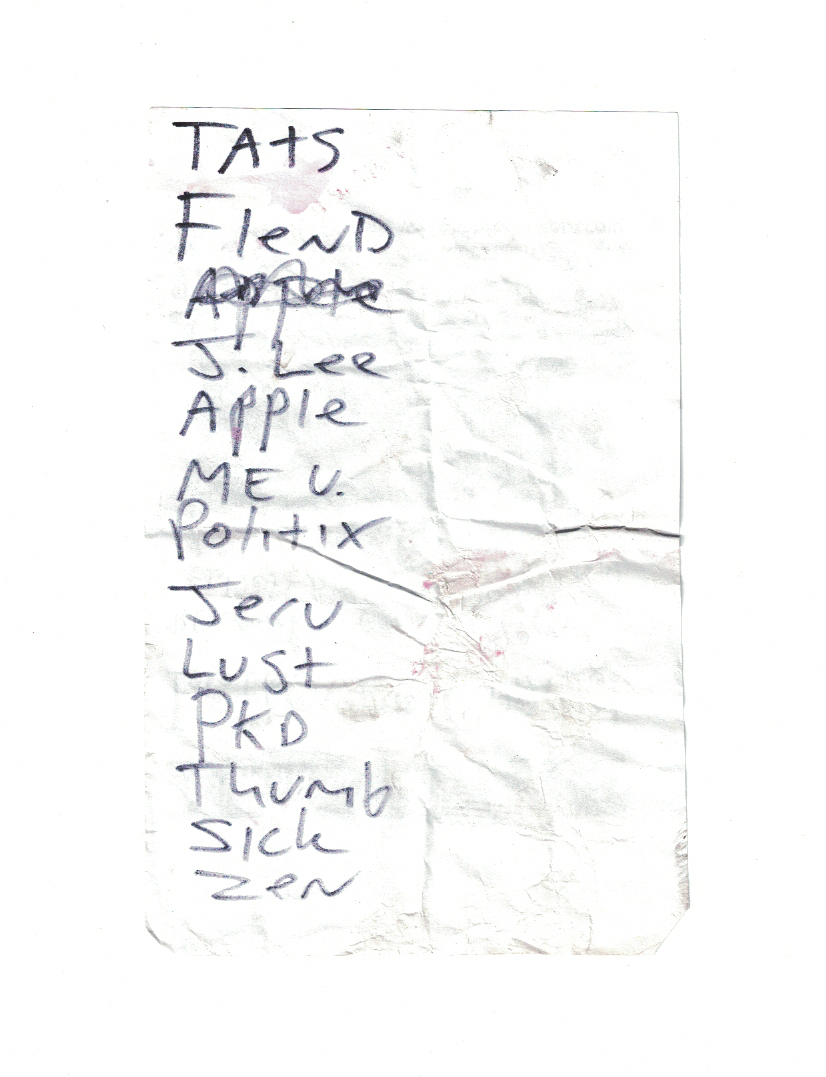 TATS
FIeND
Apple
J. Lee
Apple
ME U.
Politix
Jeru
Lust
PKD
Thumb
Sick
Zen